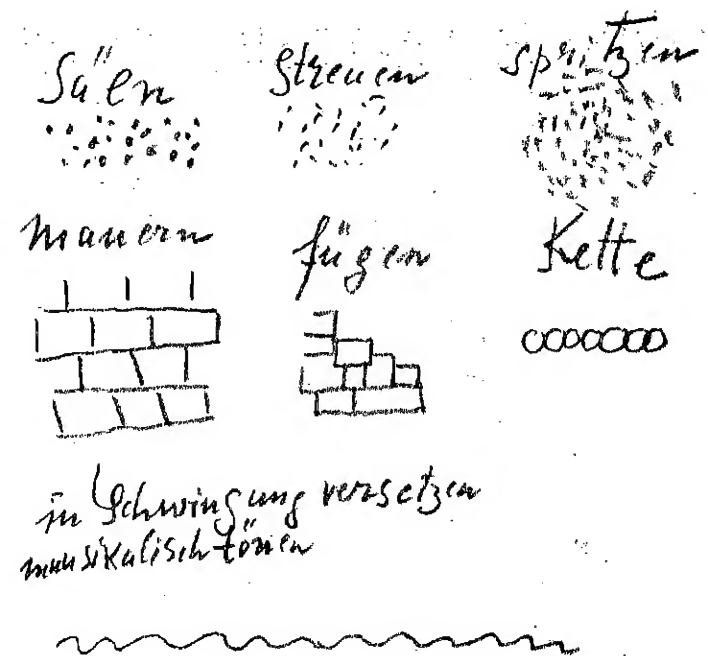 Säen
Streuen
spritzen
mauern
fügen
Kette
in Schwingung versetzen
musikalisch tönen